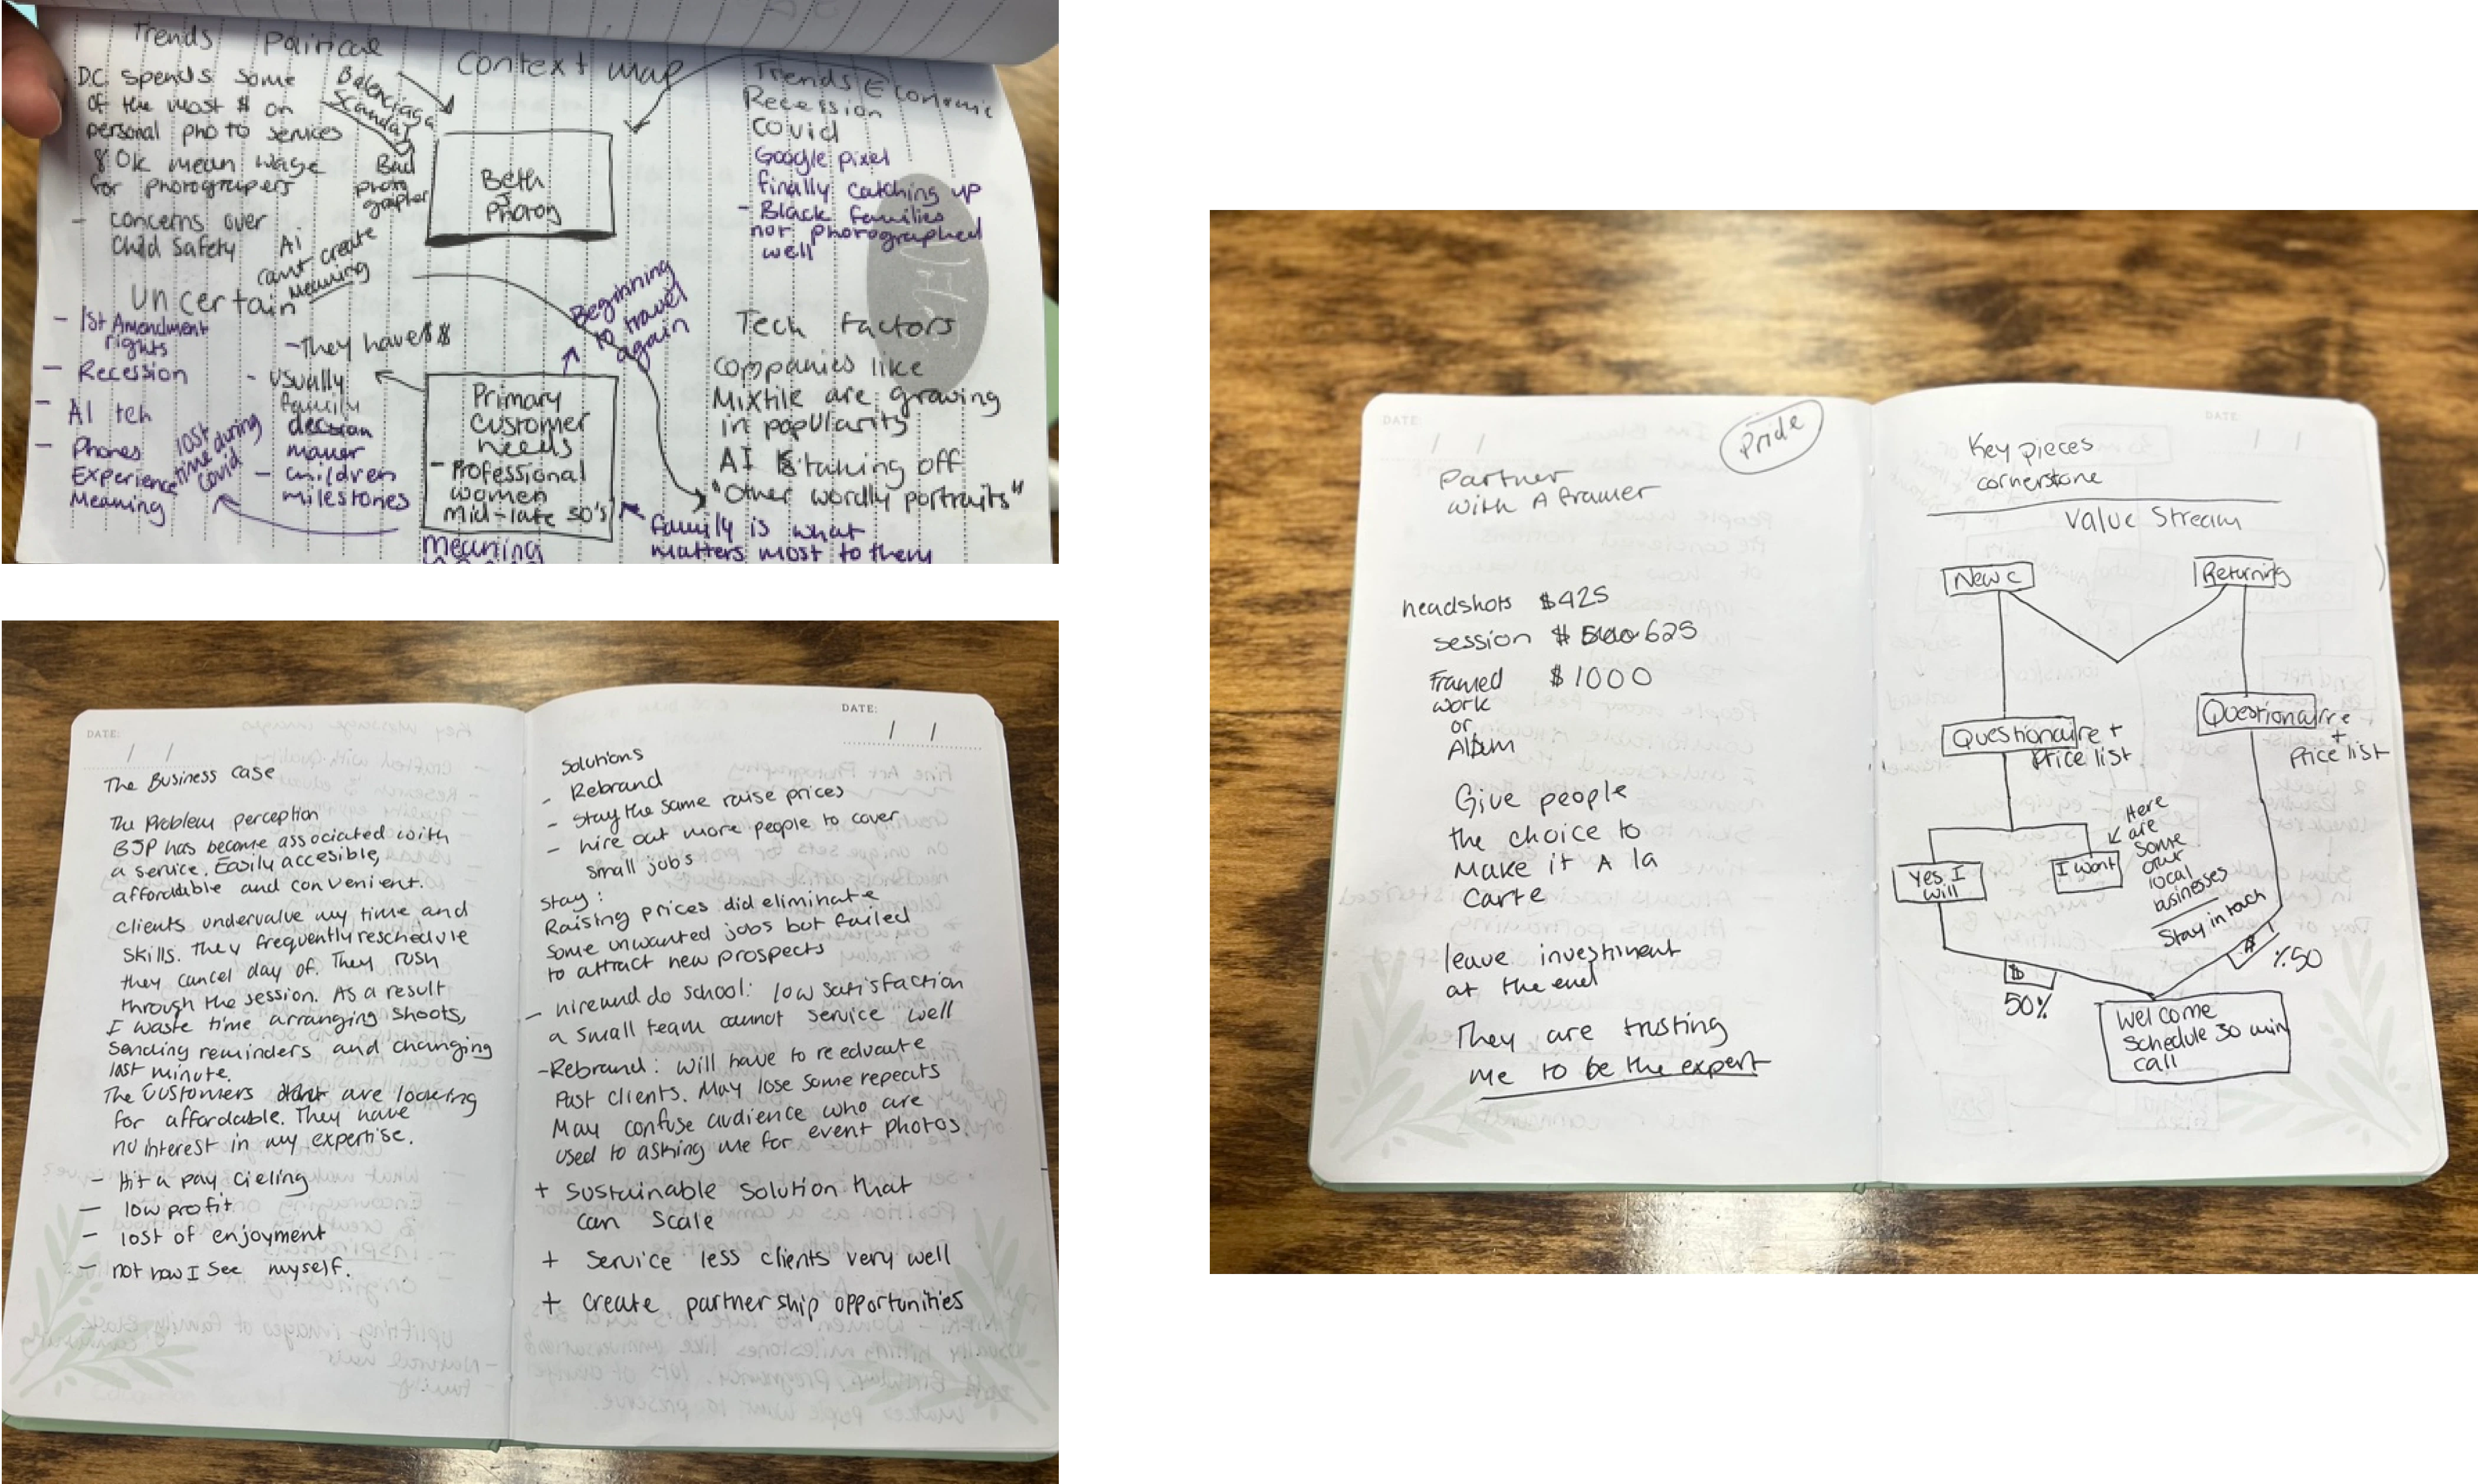 Trends Political
D.C. spends some
of the most $ on
personal photo services
80k mean wage
for photograpers
- concerns over
child safety
Balenciaga
Scandal
Bad
photo
grapher
Ai
cant create
Meaning
Context map
Beth
J
Photog
Trends Economic
Recession
Covid
Google pixel
finally catching up
- Black families
not photographed
well
Uncertain
- 1st Amendment
rights
- Recession
- AI tch
- Phones
Experience
Meaning
lost
time during
Covid
- They have $$
- usually
family
decision
maker
- children
milestones
Beginning
to travel
again
Primary
Customer
needs
- Professional
women
Mid-late 30's
meaning
Tech factors
companies like
Mixtile are growing
in popularity
AI is taking off
"Other wordly portraits"
family is what
matters most to them
DATE:
/ /
The Business case
The Problem perception
BJP has become associated with
a service. Easily accesible,
affordable and convenient.
Clients undervalue my time and
skills. They frequently reschedule
they cancel day of. They rush
through the session. As a result
I waste time arranging shoots,
sending reminders and changing
last minute.
The customers are looking
for affordable. They have
no interest in my expertise.
- Hit a pay cieling
- low profit
- lost of enjoyment
- not how I see myself.
DATE:
/ /
Solutions
- Rebrand
- Stay the same raise prices
- hire out more people to cover
small jobs
Stay:
Raising prices did eliminate
some unwanted jobs but failed
to attract new prospects
- hire and do school: low satisfaction
a small team cannot service well
- Rebrand: will have to reeducate
Past clients. May lose some repeats
May confuse audience who are
used to asking me for event photos.
+ Sustainable solution that
can scale
+ Service less clients very well
+ create partnership opportunities
DATE:
/ /
Pride
Partner
with A framer
headshots $425
session $ 625
Framed $1000
work
or
Album
Give people
the choice to
Make it A la
Carte
leave investment
at the end
They are trusting
me to be the expert
DATE
/ /
Key pieces
cornerstone
Value Stream
New c
Returning
Questionaire +
Price list
Questionaire
+
Price list
Yes I
will
I wont
Here
are
some
our
local
businesses
Stay in toch
$
50%
$
%50
Welcome
Schedule 30 min
call